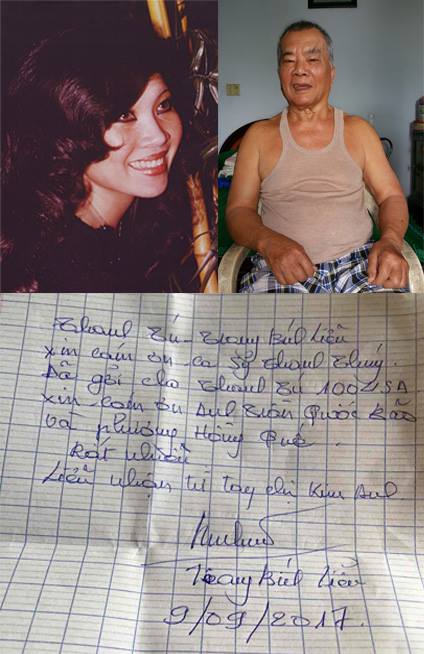 Thanh Tú - Trang Bích Liễu
xin cám ơn ca sỹ Thanh Thúy.
Đã gởi cho Thanh Tú 100 USA
xin cám ơn Anh Trần Quốc Bảo
và phương Hồng Quế.
Rất nhiều
Liễu nhận từ tay chị Kim Anh
Trang Bích Liễu
9/09/2017.